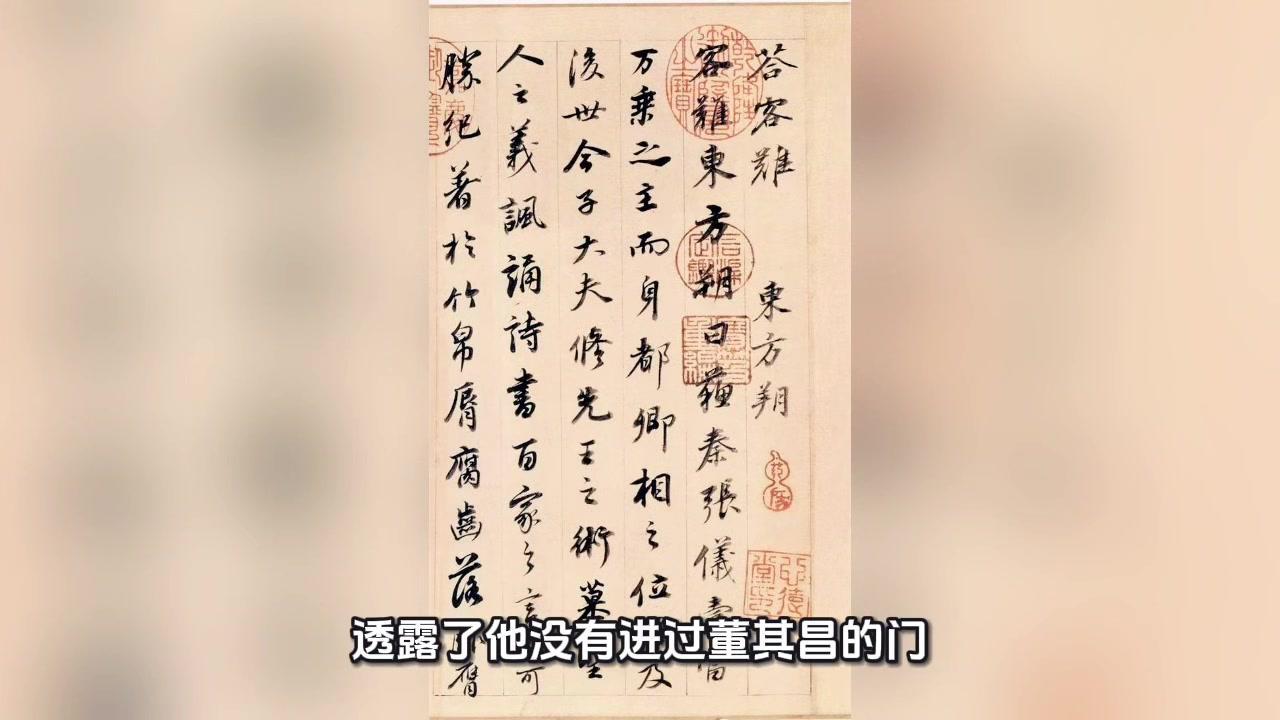 荅客難 東方朔
客難東方朔曰蘇秦張儀壹當
万乗之主而身都卿相之位 及
後世今子大夫修先王之術慕
人之義諷誦詩書百家之言 可
勝紀著於竹帛脣腐齒落
透露了他没有进过董其昌的门